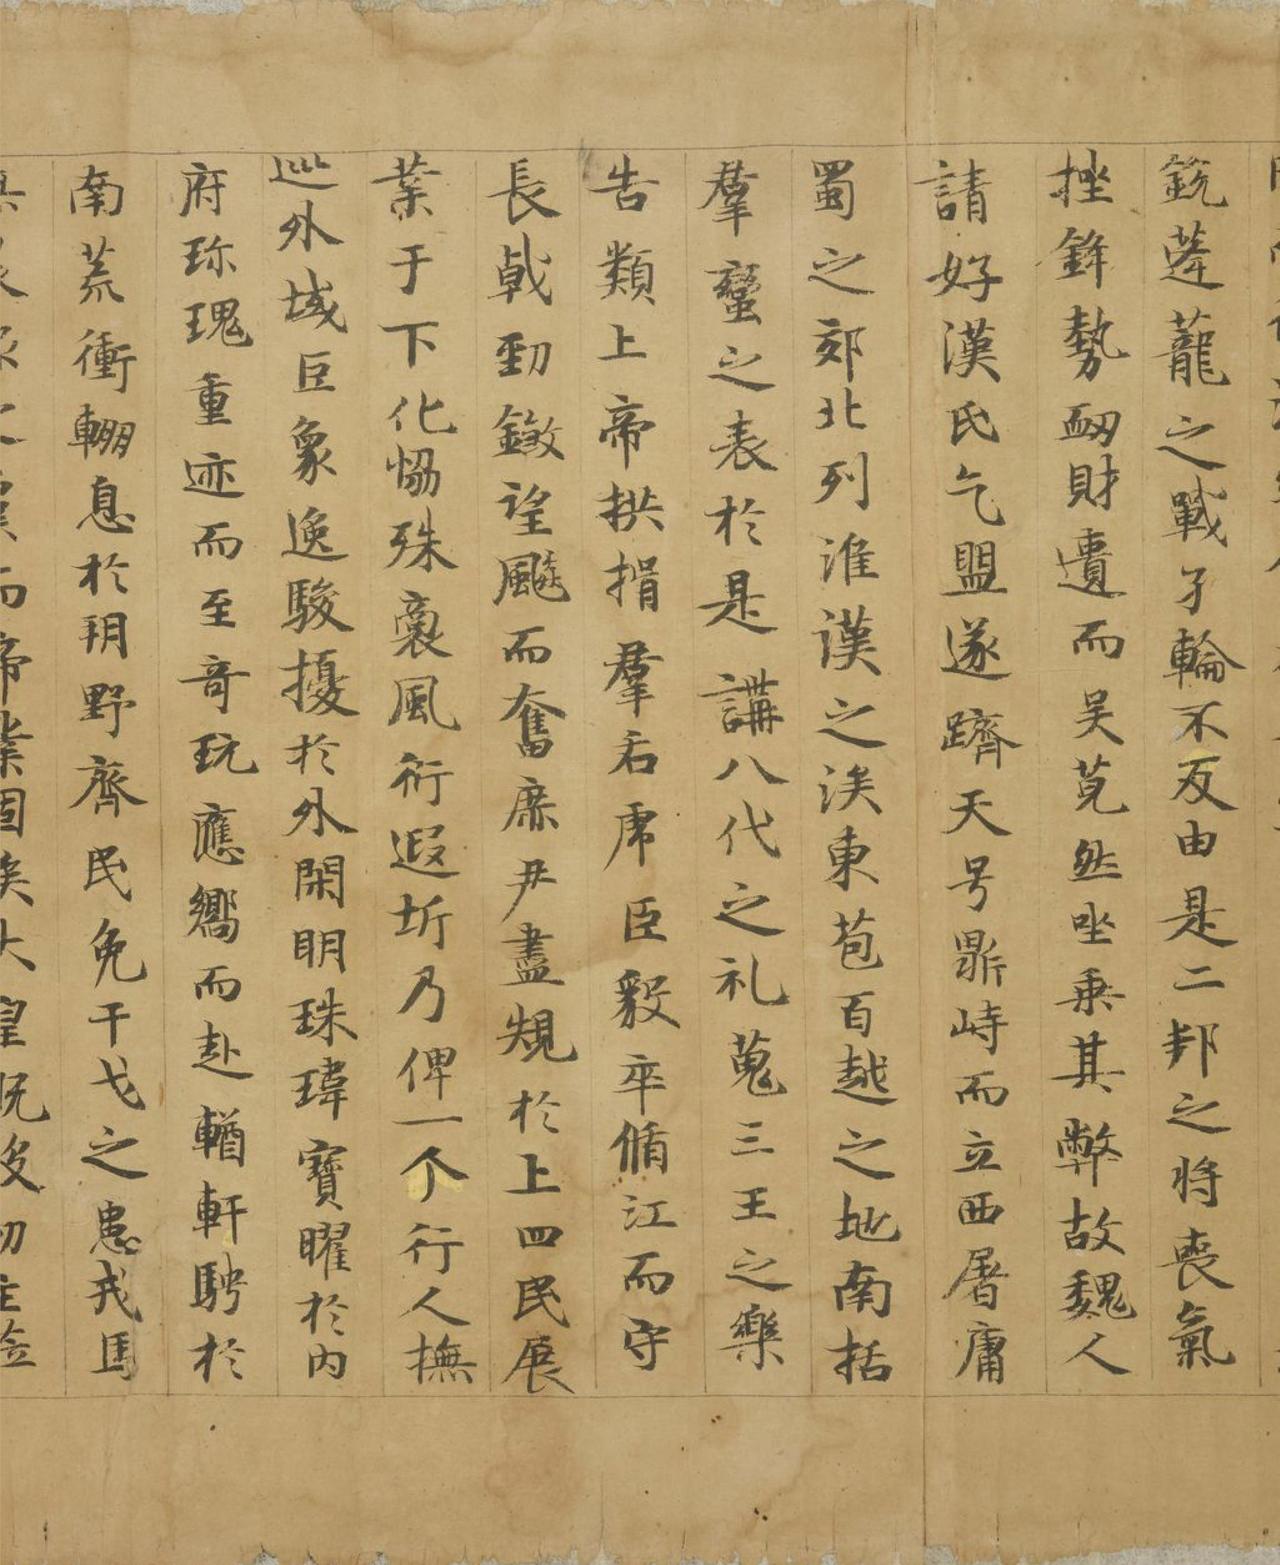 銃蓬蘢之戰孑輪不反由是二邦之將喪氣
挫鋒勢衂財遺而吴莧然坐乗其弊故魏人
請好漢氏乞盟遂躋天号鼎峙而立西屠庸
蜀之郊北列淮漢之涘東苞百越之地南括
羣蠻之表於是講八代之礼蒐三王之樂
告類上帝拱揖羣后虎臣毅卒循江而守
長戟勁鎩望飈而奮庶尹盡規於上四民展
業于下化恊殊裔風衍遐圻乃俾一个行人撫
巡外域巨象逸駿擾於外閑明珠瑋寶曜於内
府珎瑰重迹而至竒玩應嚮而赴輶軒騁於
南荒衝輣息於朔野齊民免干戈之患戎馬